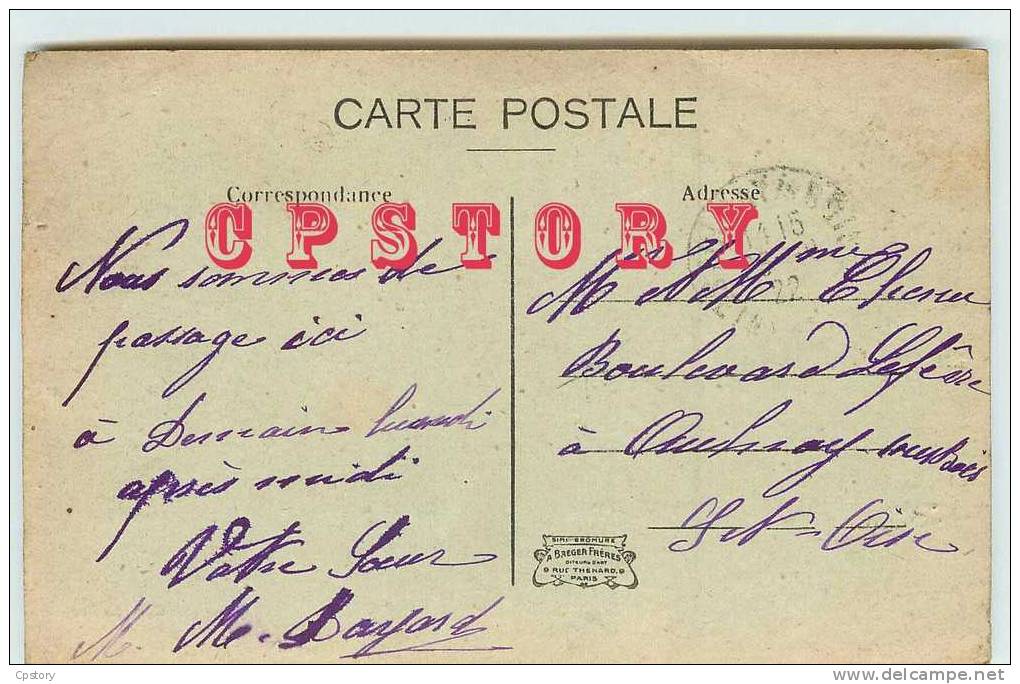 CARTE POSTALE
Correspondance
Adresse
CPSTORY
Nous sommes de
passage ici
à Demain lundi
après midi
Votre Sœur
M. M. Bayard
Mr et Mme
Boulevard Lefèvre
à Aulnay sous bois
Set-Oise
SIMI-BROMURE
A. BREGER FRÈRES
9 RUE THENARD, 9
PARIS
22
Cpstory
delcampe.net